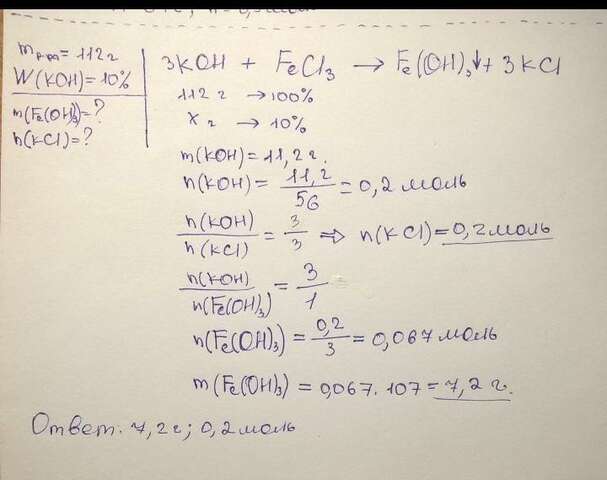 m р-ра = 112 г
W(KOH) = 10%
m(Fe(OH)3) = ?
n(KCl) = ?
3KOH + FeCl3 → Fe(OH)3↓ + 3KCl
112 г → 100%
X г → 10%
m(KOH) = 11,2 г.
n(KOH) = 11,2 / 56 = 0,2 моль
n(KOH) / n(KCl) = 3 / 3 ⇒ n(KCl) = 0,2 моль
n(KOH) / n(Fe(OH)3) = 3 / 1
n(Fe(OH)3) = 0,2 / 3 = 0,067 моль
m(Fe(OH)3) = 0,067 · 107 = 7,2 г.
Ответ. 7,2 г; 0,2 моль